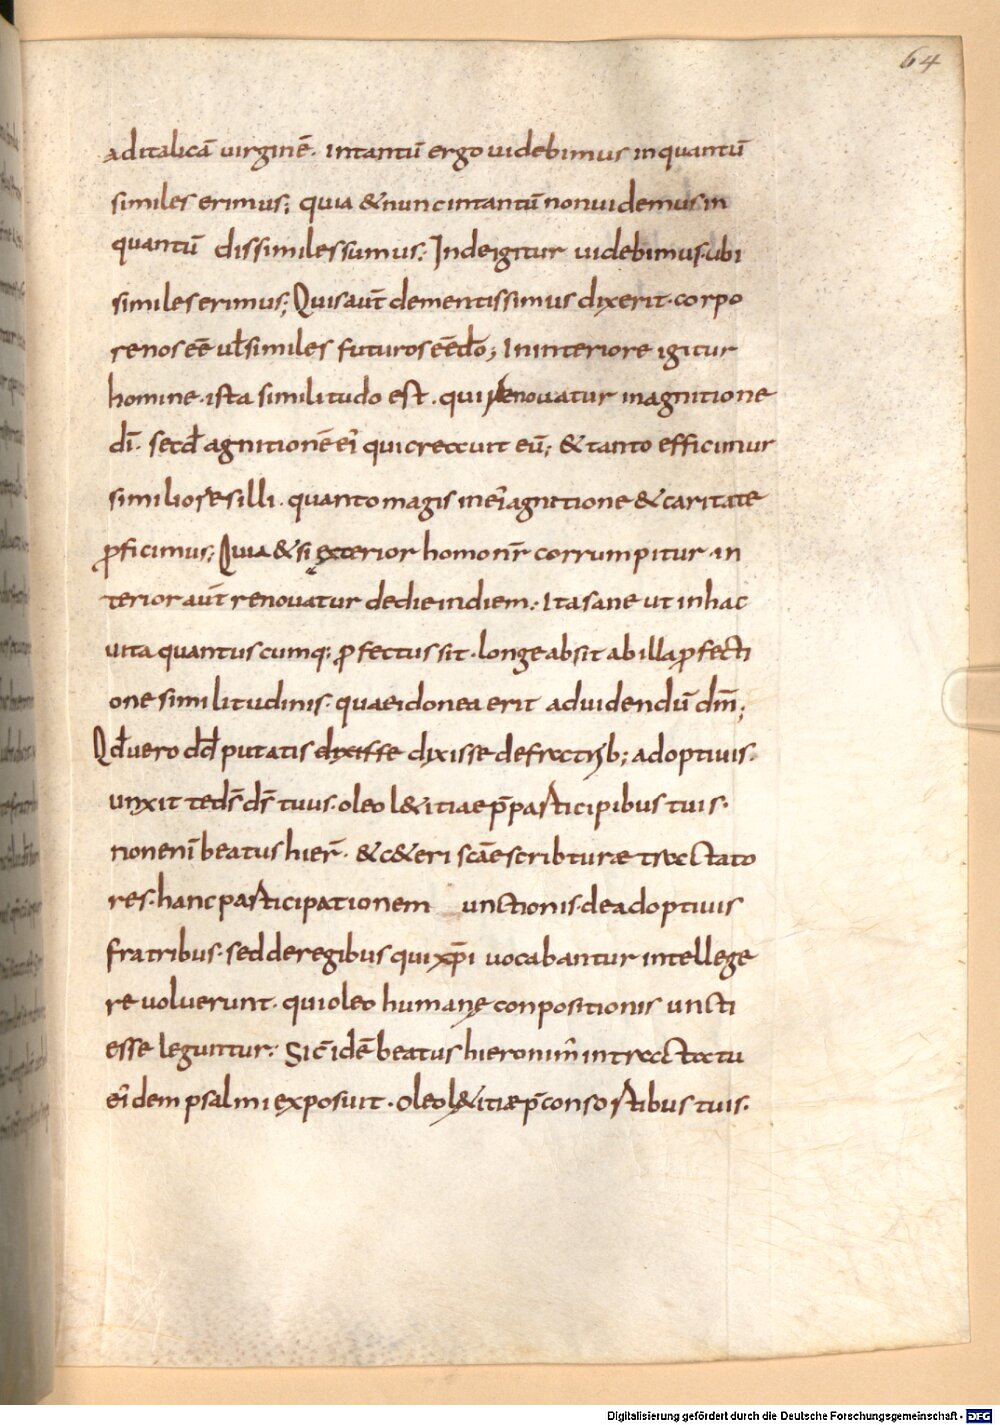 64
ad italicā virginē. Intantū ergo uidebimus inquantū
similes erimus; quia & nunc intantū non uidemus in
quantū dissimiles sumus; Inde igitur uidebimus. ubi
similes erimus; Quis aut̄ dementissimus dixerit. corpo
re nos eē ul̄ similes futuros eē do; In interiore igitur
homine. ista similitudo est. qui renouatur in agnitione
dī. secd̄ agnitionē eī qui creauit eū; & tanto efficimur
similiores illi. quanto magis in eī agnitione & caritate
ꝓficimus; Quia & si exterior homo nr̄ corrumpitur. in
terior aut̄ renouatur de die in diem; Ita sane ut in hac
uita quantuscumq; ꝓfectus sit. longe absit ab illa ꝓfecti
one similitudinis. quae idonea erit ad uidendū dm̄;
Qd̄ uero dd̄ putatis dixisse dixisse de fratrib; adoptiuis.
unxit te ds̄ ds̄ tuus. oleo l&itiae p̄ participibus tuis.
non enī beatus hier̄. & c&eri scāe scribturæ tractato
res. hanc participationem unctionis. de adoptiuis
fratribus. sed de regibus qui xp̄i uocabantur intellege
re uoluerunt. qui oleo humanę conpositionis uncti
esse leguntur; Sic idē beatus hieronim̄ in tractatu
eīdem psalmi exposuit. Oleo l&itiæ p̄ consortibus tuis.
Digitalisierung gefördert durch die Deutsche Forschungsgemeinschaft - DFG